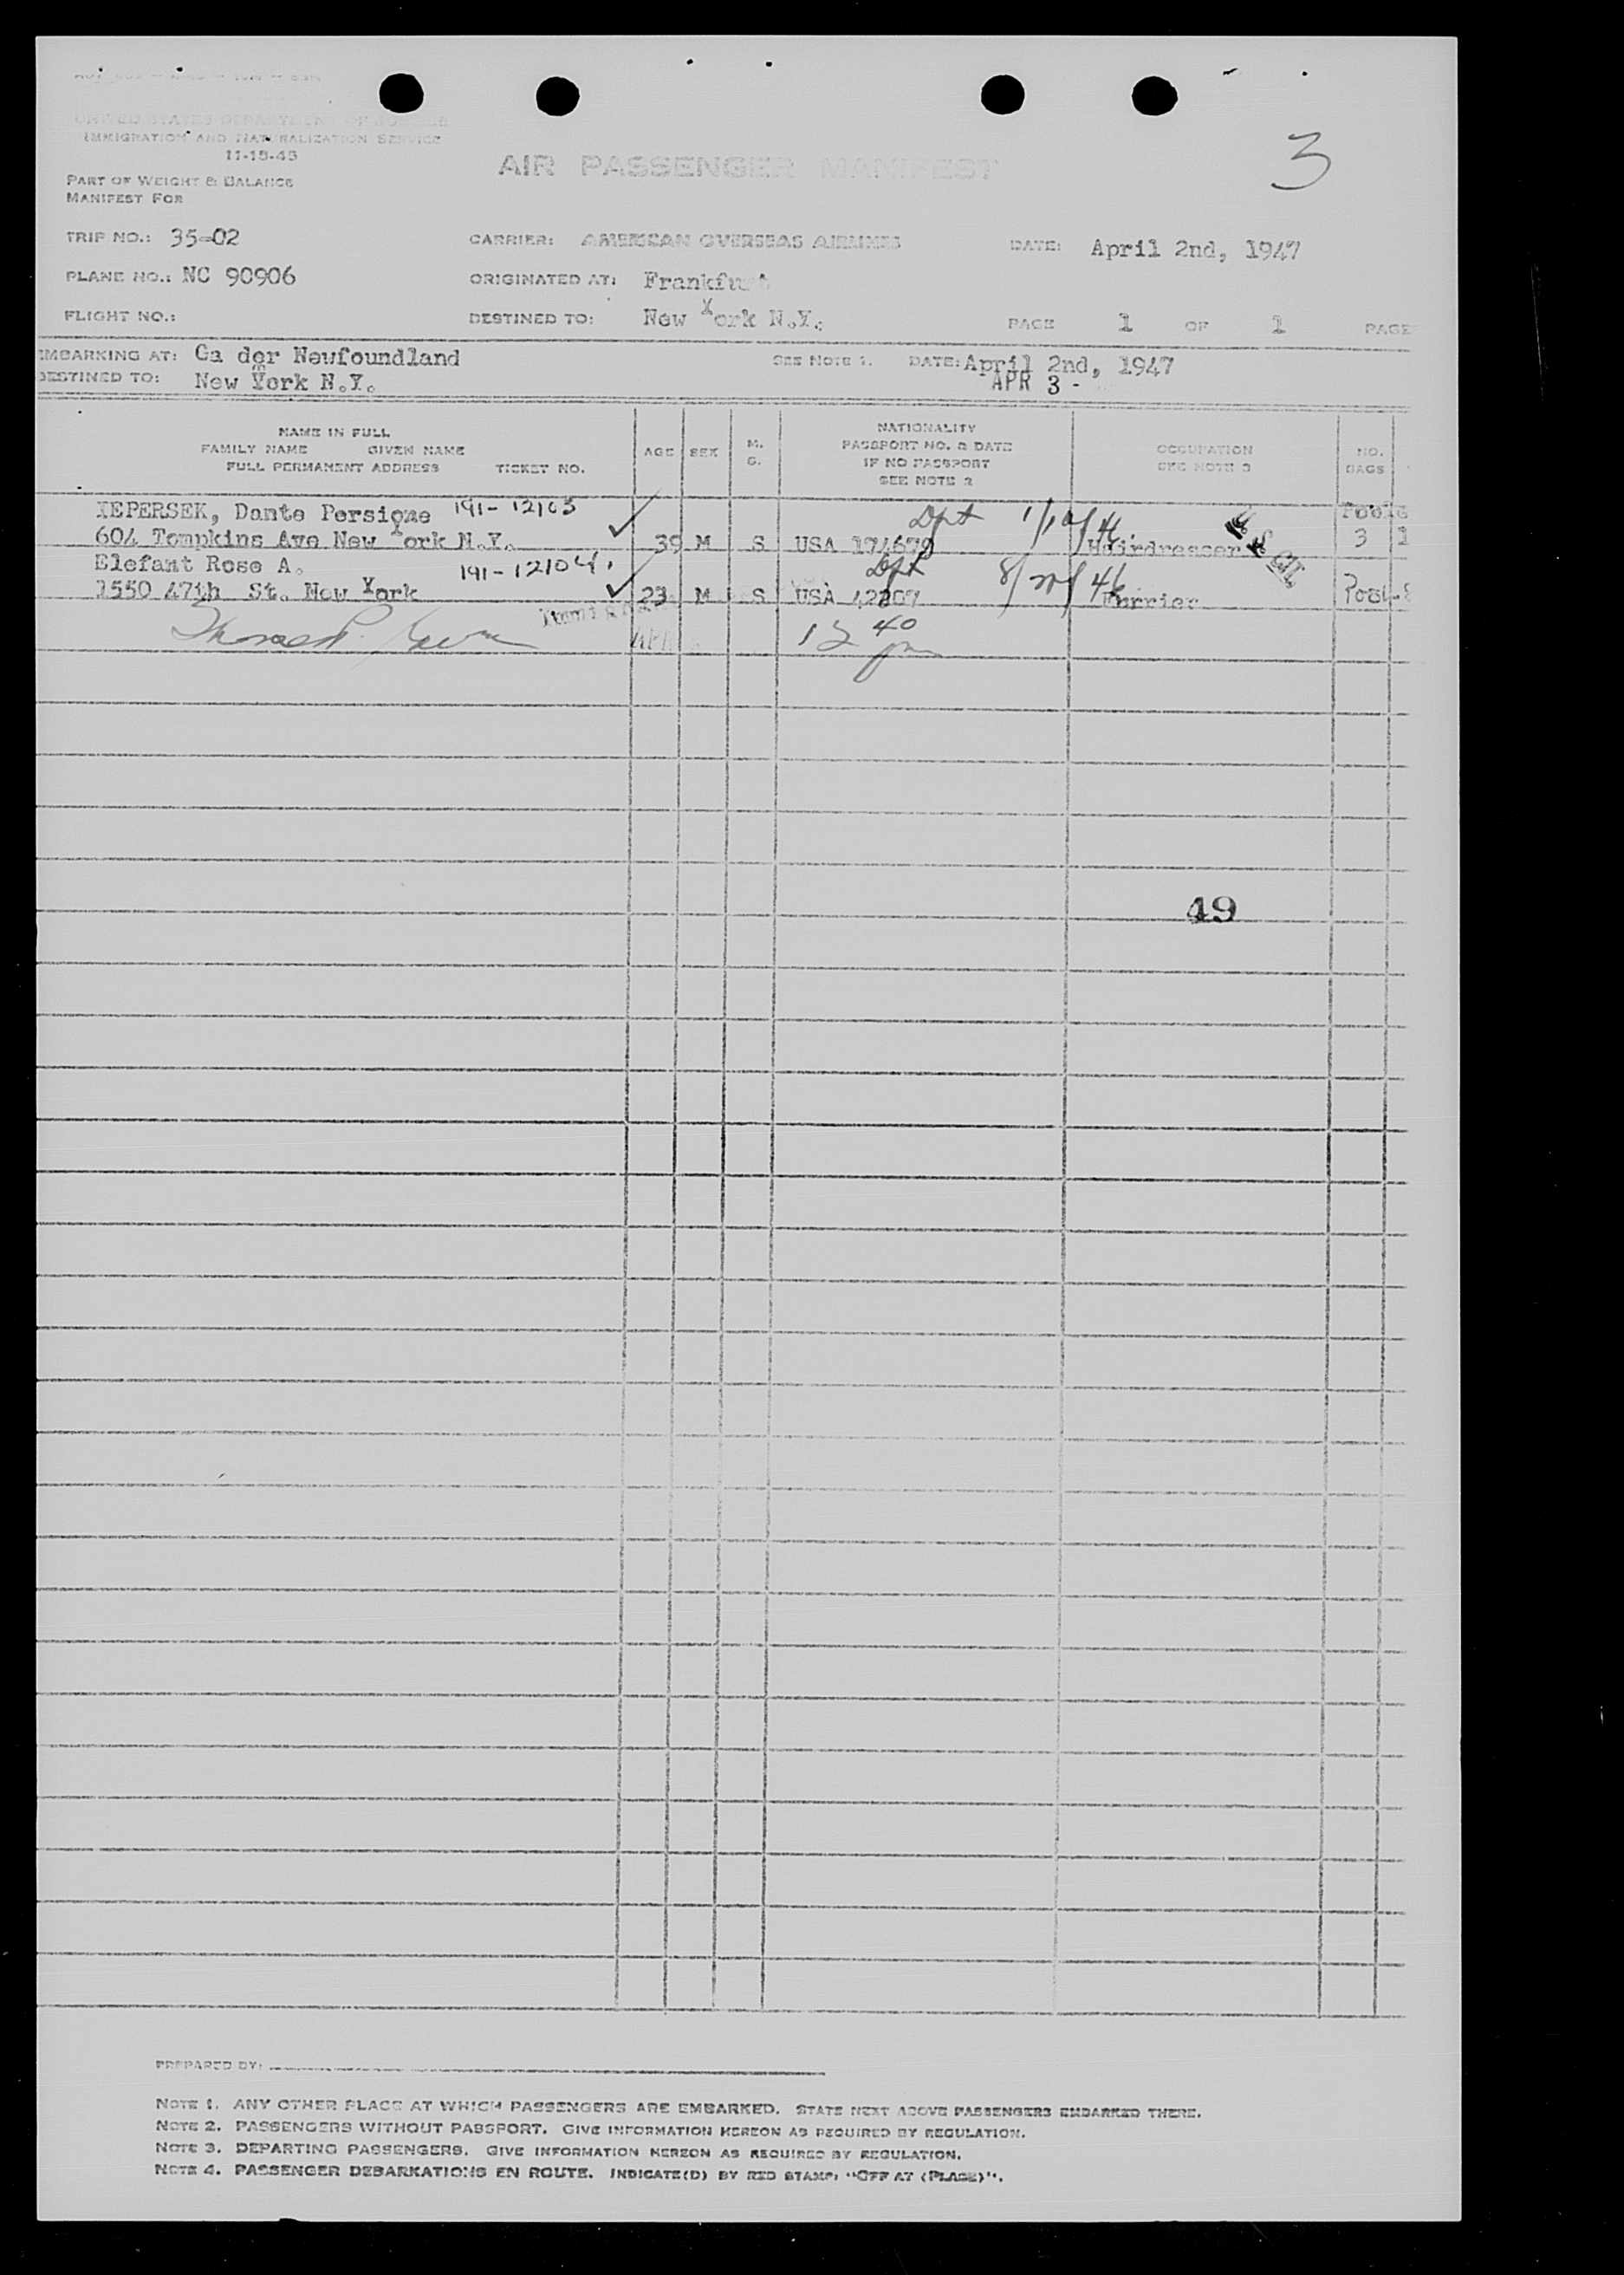 3
UNITED STATES DEPARTMENT OF JUSTICE
IMMIGRATION AND NATURALIZATION SERVICE
11-15-45
AIR PASSENGER MANIFEST
PART OF WEIGHT & BALANCE
MANIFEST FOR
TRIP NO.: 35-02 CARRIER: AMERICAN OVERSEAS AIRLINES DATE: April 2nd, 1947
PLANE NO.: NC 90906 ORIGINATED AT: Frankfurt
FLIGHT NO.: DESTINED TO: New York N.Y. PAGE 1 OF 1 PAGE
EMBARKING AT: Ga der Newfoundland SEE NOTE 1. DATE: April 2nd, 1947
DESTINED TO: New York N.Y. APR 3 -
NAME IN FULL
FAMILY NAME GIVEN NAME
FULL PERMANENT ADDRESS TICKET NO.
AGE SEX M. S.
NATIONALITY
PASSPORT NO. & DATE
IF NO PASSPORT
SEE NOTE 2
OCCUPATION
SEE NOTE 3
NO.
BAGS
Dante Persione 191-12103
604 Tompkins Ave New York N.Y. 39 M S USA Hairdresser 3 1
Elefant Rose A. 191-12104
1550 47th St. New York 23 M S USA Furrier
12 40 pm
49
PREPARED BY:
NOTE 1. ANY OTHER PLACE AT WHICH PASSENGERS ARE EMBARKED. STATE NEXT ABOVE PASSENGERS EMBARKED THERE.
NOTE 2. PASSENGERS WITHOUT PASSPORT. GIVE INFORMATION HEREON AS REQUIRED BY REGULATION.
NOTE 3. DEPARTING PASSENGERS. GIVE INFORMATION HEREON AS REQUIRED BY REGULATION.
NOTE 4. PASSENGER DEBARKATIONS EN ROUTE. INDICATE(D) BY RED STAMP: "OFF AT (PLACE)".